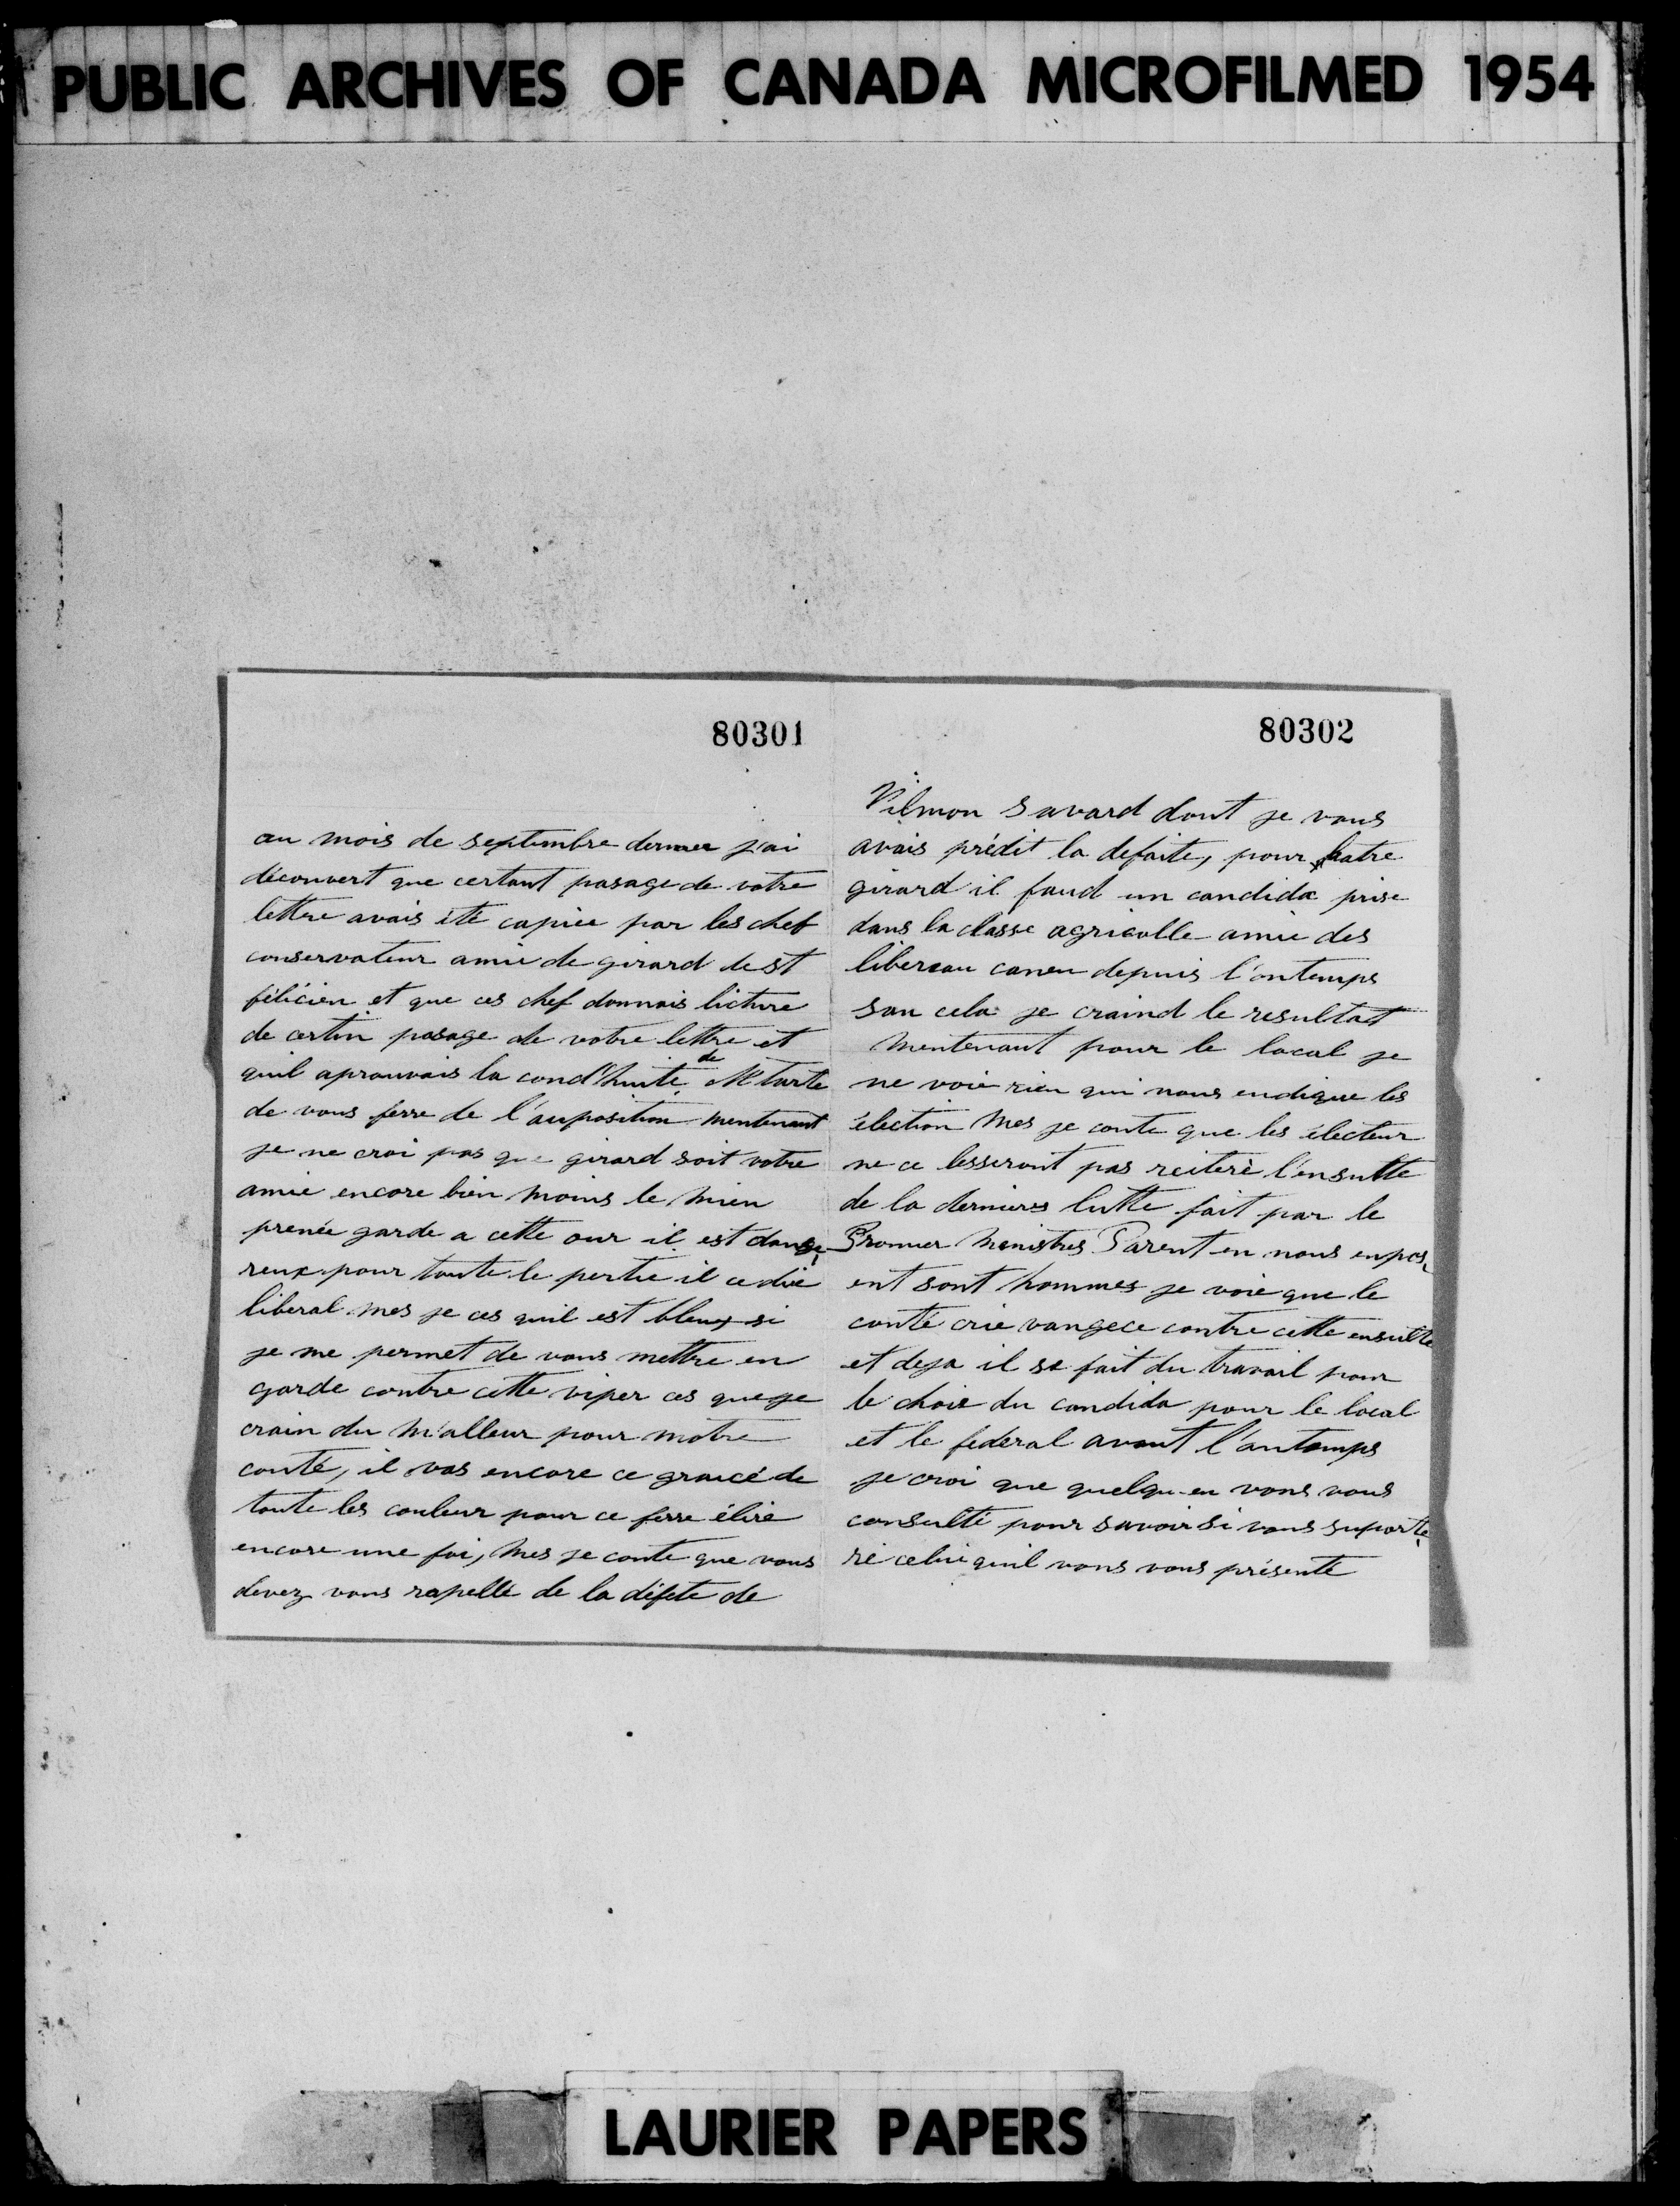 PUBLIC ARCHIVES OF CANADA MICROFILMED 1954
80301
au mois de septembre dernier j'ai
découvert que certant pasage de votre
lettre avais été capiée par les chef
conservateur amie de girard de st
félicien et que ces chef donnais licture
de certin pasage de votre lettre et
quil aprouvais la cond'huite de M Tarte
de vous ferre de l'auposition mentenant
je ne croi pas que girard soit votre
amie encore bien moins le mien
prenée garde a cette our il est dange
reux pour toute le pertie il ce die
liberal mes je ces quil est bleux si
je me permet de vous mettre en
garde contre cette viper ces que je
crain du m'alleur pour notre
conté, il vas encore ce graicé de
toute les couleur pour ce ferre élire
encore une foi, mes je conte que vous
devez vous rapellé de la défete de
80302
Pilmon Savard dont je vous
avais prédit la defaite, pour batre
girard il faud un candida prise
dans la classe agricolle amie des
libereau coneu depuis l'ontemps
san cela je craind le resultat
Mentenant pour le local je
ne voie rien qui nous endique les
élection mes je conte que les électeur
ne ce lesseront pas reiteré l'ensulte
de la derniere lutte fait par le
Promier Menistres Parent en nous enpos
ent sont hommes je voie que le
conté crie vangece contre cette ensulte
et deja il se fait du travail pour
le choie du candida pour le local
et le federal avant l'antemps
je croi que quelqu-en vons vous
consulté pour savoir si vous suporte
ré celui quil vons vous présenté
LAURIER PAPERS